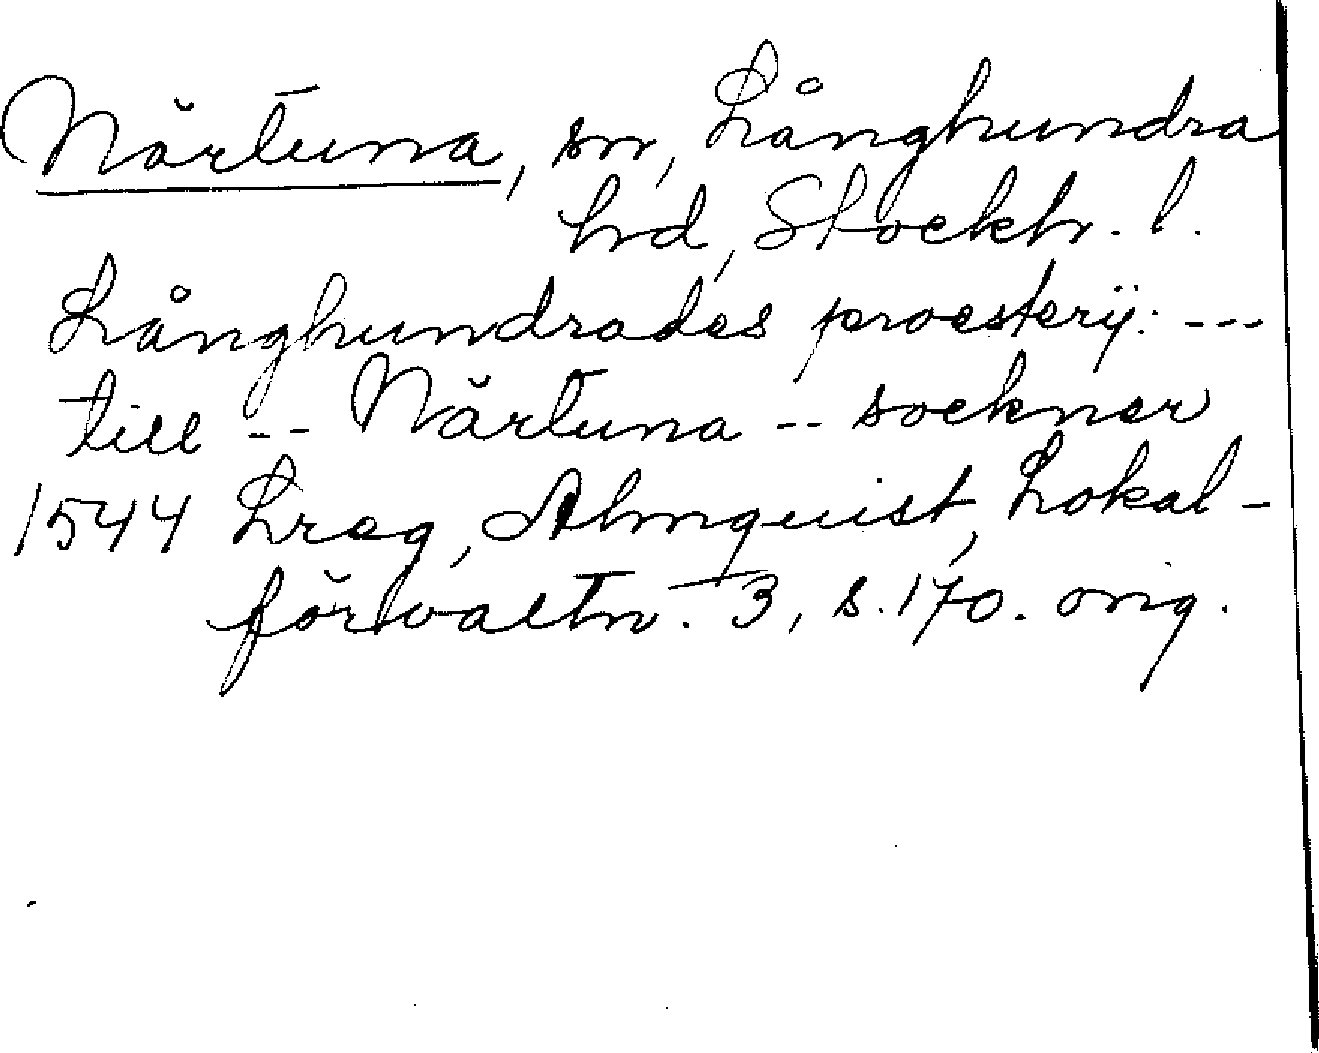 Närtuna, sn, Långhundra
hd, Stockh. l.
Långhundrades proesterij: ---
till -- Närtuna -- sockner
1544 Lreg, Almquist, Lokal-
förvaltn. 3, s. 170. orig.